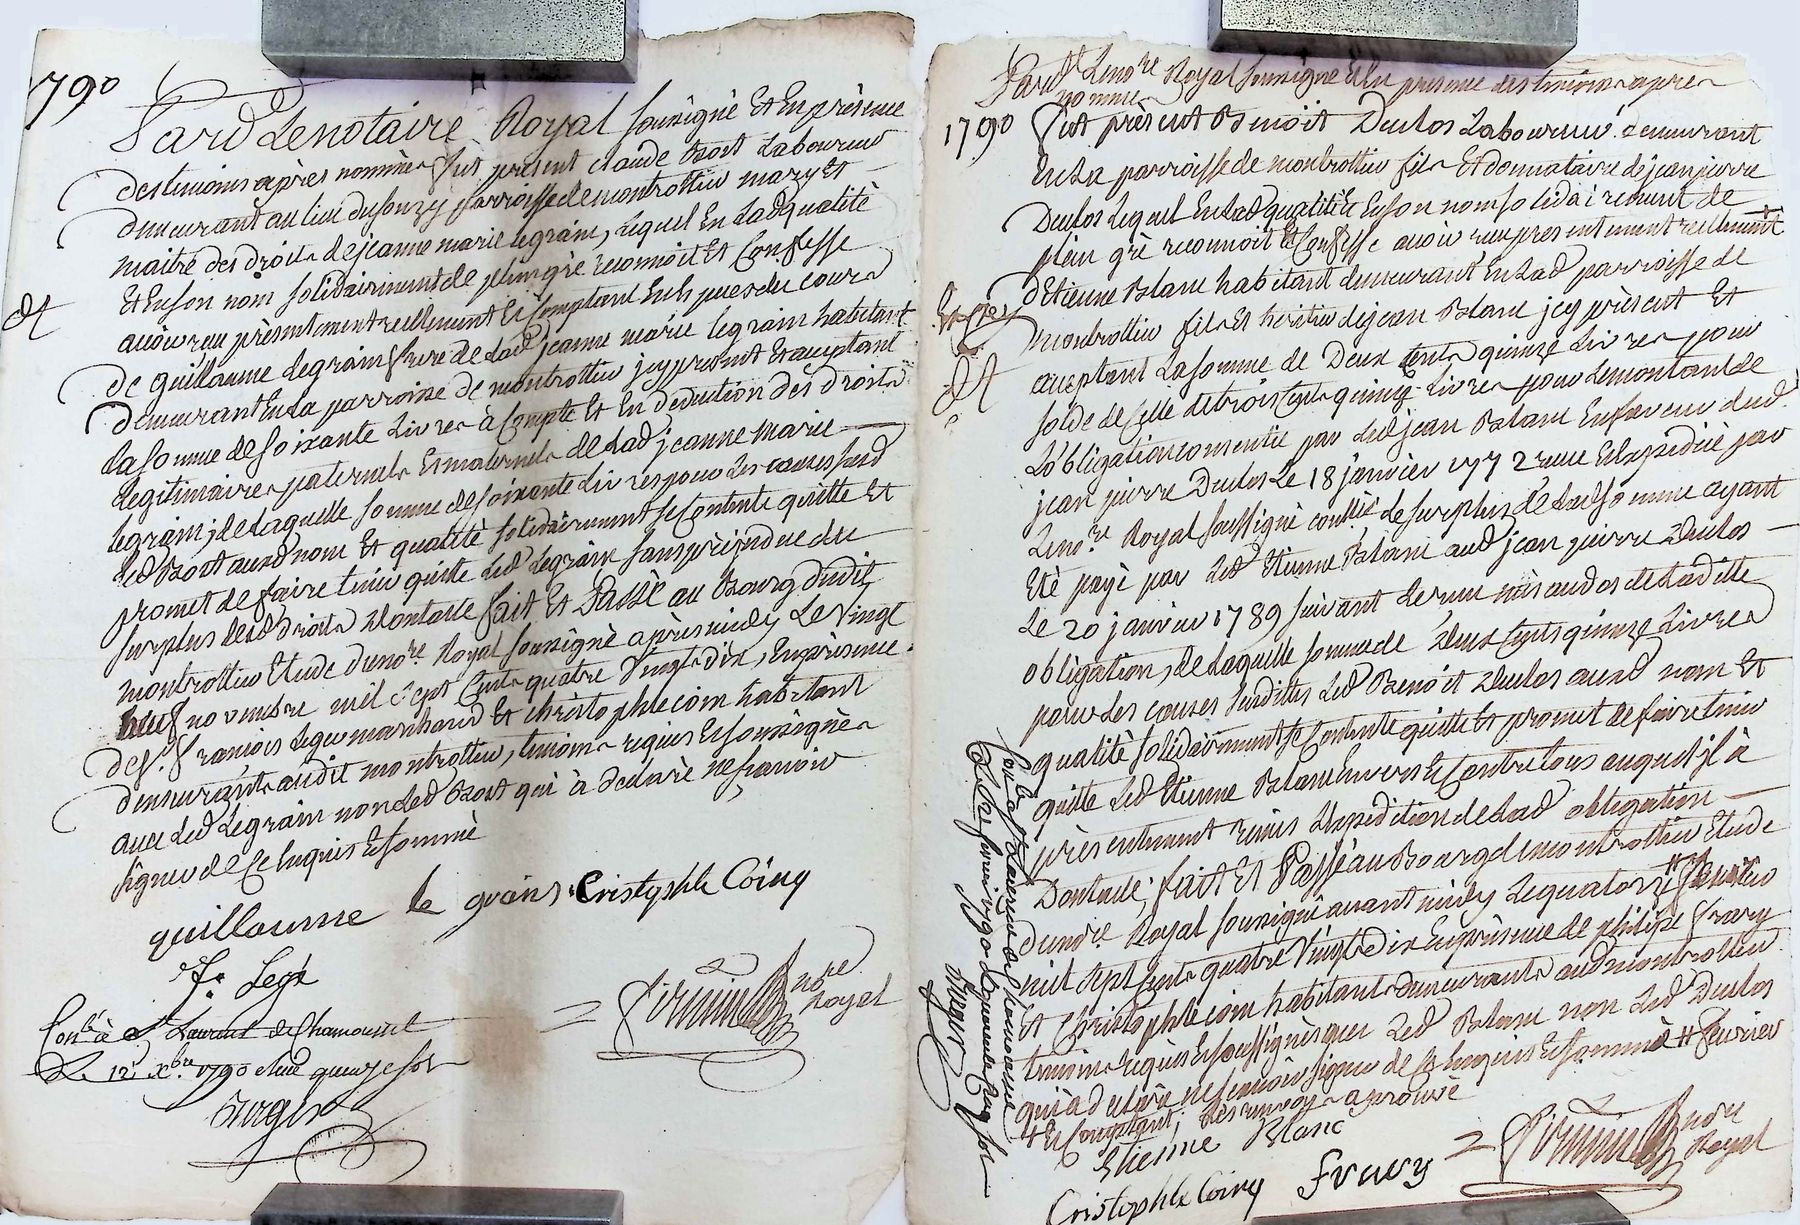 1790
Pard. Le notaire Royal soussigné Et En présence
des temoins après nommés fut present Claude Bost Laboureur
demeurant au lieu du fouzy parroisse de montrottier mary et
maitre des droits de jeanne marie legrain, lequel En Ladqualité
Et En son nom solidairement de plein gré reconnoit Et Confesse
avoir reçu présentement reellement Et Comptant En Espèces du cours
de guillaume Legrain frere de Lad jeanne marie legrain habitant
demeurant En La parroisse de montrottier jcy present Et acceptant
La somme de soixante Livres à Compte Et En deduction des droits
Legitimaires paternels Et maternels de Lad jeanne Marie
legrain, de Laquelle somme de soixante Livres pour Les causes susd
Led Bost ausd nom Et qualité solidairement se Contente quitte Et
promet de faire tenir quitte Led Legrain sans préjudice du
surplus desd droits Dontacte fait Et Passé au Bourg dudit
montrottier Etude du nore. Royal soussigné après midy Le vingt
neuf novembre mil Sept Cents quatre Vingts dix, En présence
de sr. francois Legex marchand Et christophle coin habitants
demeurants audit montrottier, temoins requis Et soussignés
avec Led Legrain non Led Bost qui à declaré ne sçavoir
signer de Ce Enquis Et sommé
guillaume le grain Cristophle Coing
f. Legx
nore Royal
Conlé à St Laurent de Chamousset
Le 12 xbre 1790 quinze sols
1790
Pard. Le nore Royal soussigné Et En presence des temoins apres
nommés
fut présent Benoît Duclos Laboureur demeurant
En La parroisse de montrottier fils Et donnataire de jean pierre
Duclos Lequel En Lad qualité Et En son nom solidairement de
plein gré reconnoit Et Confesse avoir reçu presentement reellement
d'Etienne Blanc habitant demeurant En Lad parroisse de
montrottier fils Et heritier de jean Blanc jcy présent Et
acceptant La somme de Deux Cents quinze Livres pour
solde de Celle de trois Cents quinze Livres pour Le montant de
L'obligation consentie par Led jean Blanc En faveur dud
jean pierre Duclos Le 18 janvier 1772 reçue Et Expediée par
Le nore. Royal soussigné Le surplus de Lad somme ayant
Eté payé par Led Etienne Blanc aud jean pierre Duclos
Le 20 janvier 1789 suivant Le reçu mis au dos de Ladite
obligation, de Laquelle somme de Deux Cents quinze Livres
pour Les causes susdites Led Benoit Duclos ausd nom Et
qualité solidairement se Contente quitte Et promet de faire tenir
quitte Led Etienne Blanc Envers Et Contre tous auquel jl à
présentement remis L'Expedition de Lad obligation
Dontacte, fait Et Passé au Bourg de montrottier Etude
du nore Royal soussigné avant midy Le quatorze
mil Sept Cents quatre Vingts dix En présence de philipe frary
Et Christophle coin habitants demeurants aud montrottier
temoins requis Et soussignés avec Led Blanc non Led Duclos
qui a declaré ne sçavoir signer de Ce Enquis Et sommé # fevrier
Et En Comptant, Les renvoys aprouvé
Etienne Blanc
Cristophle Coing frary
nore Royal